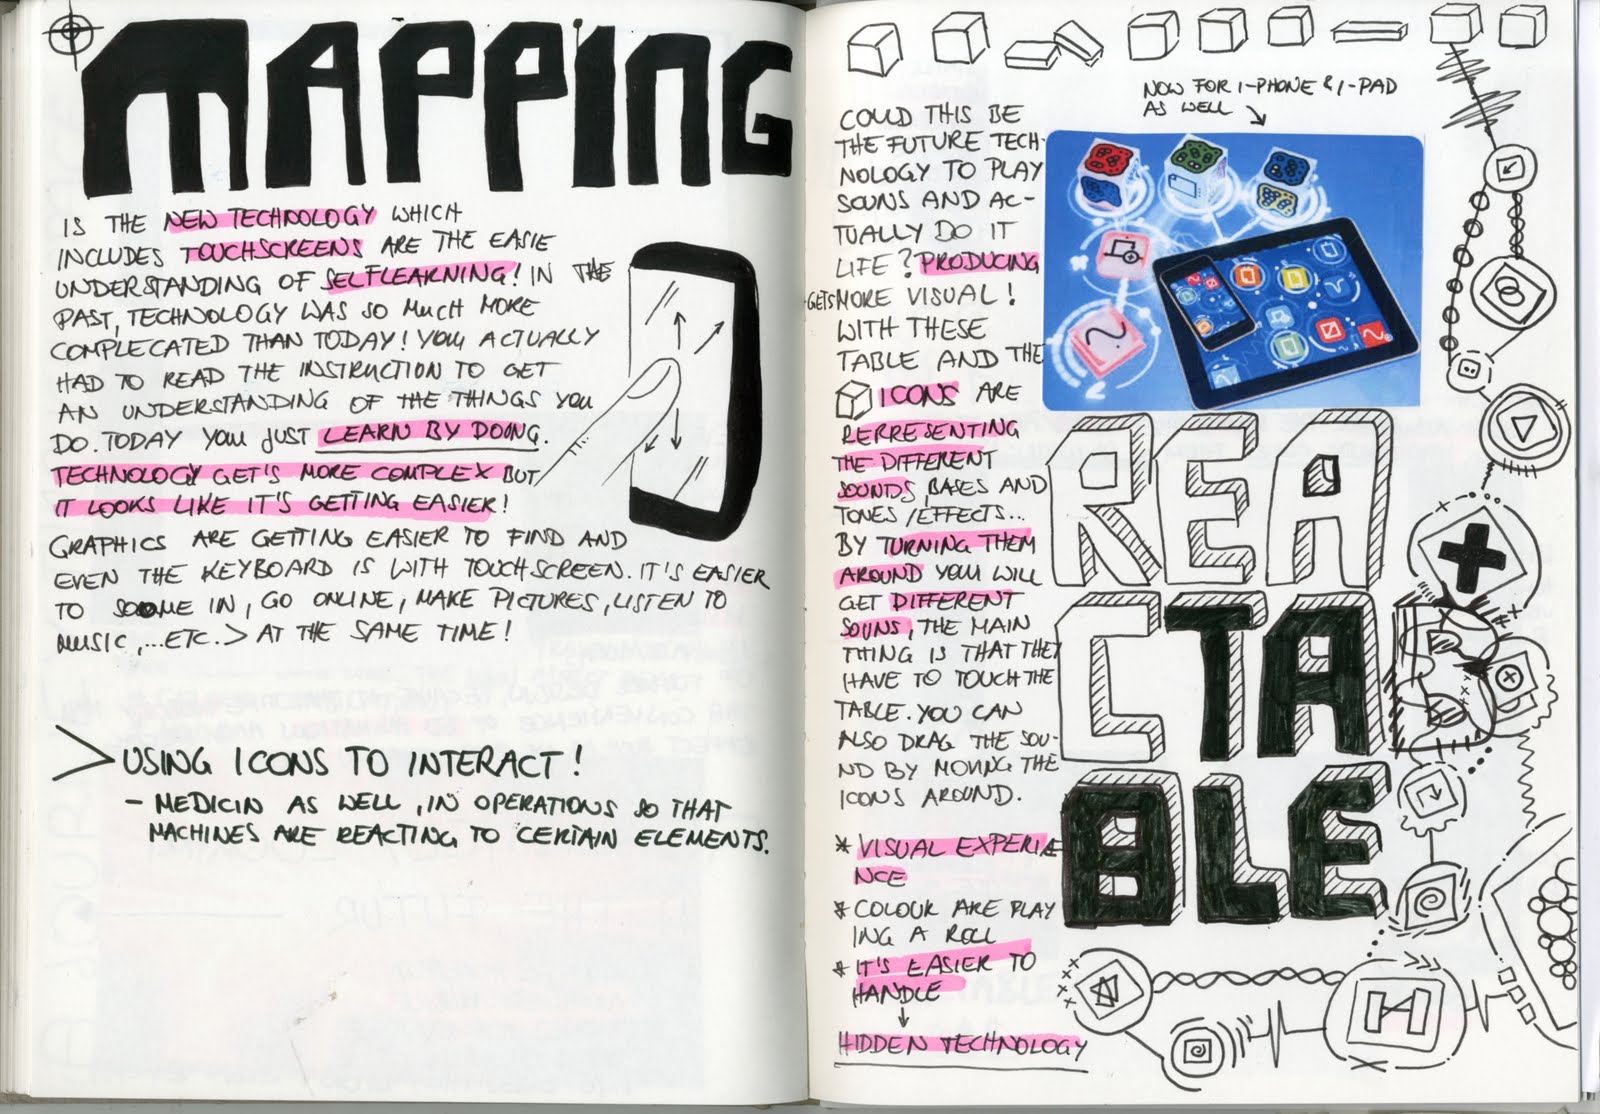 MAPPING
IS THE NEW TECHNOLOGY WHICH
INCLUDES TOUCHSCREENS ARE THE EASIE
UNDERSTANDING OF SELFLEARNING! IN THE
PAST, TECHNOLOGY WAS SO MUCH MORE
COMPLECATED THAN TODAY! YOU ACTUALLY
HAD TO READ THE INSTRUCTION TO GET
AN UNDERSTANDING OF THE THINGS YOU
DO. TODAY YOU JUST LEARN BY DOING.
TECHNOLOGY GET'S MORE COMPLEX BUT
IT LOOKS LIKE IT'S GETTING EASIER!
GRAPHICS ARE GETTING EASIER TO FIND AND
EVEN THE KEYBOARD IS WITH TOUCHSCREEN. IT'S EASIER
TO IN, GO ONLINE, MAKE PICTURES, LISTEN TO
MUSIC,...ETC. > AT THE SAME TIME!
> USING ICONS TO INTERACT!
- MEDICIN AS WELL, IN OPERATIONS SO THAT
MACHINES ARE REACTING TO CERTAIN ELEMENTS.
NOW FOR I-PHONE & I-PAD
AS WELL
COULD THIS BE
THE FUTURE TECH-
NOLOGY TO PLAY
SOUNS AND AC-
TUALLY DO IT
LIFE? PRODUCING
GETS MORE VISUAL!
WITH THESE
TABLE AND THE
ICONS ARE
RERRESENTING
THE DIFFERENT
SOUNDS, BASES AND
TONES/EFFECTS...
BY TURNING THEM
AROUND YOU WILL
GET DIFFERENT
SOUNS, THE MAIN
THING IS THAT THEY
HAVE TO TOUCH THE
TABLE. YOU CAN
ALSO DRAG THE SOU-
ND BY MOVING THE
ICONS AROUND.
* VISUAL EXPERIE
NCE
* COLOUR ARE PLAY
ING A ROLL
* IT'S EASIER TO
HANDLE
HIDDEN TECHNOLOGY
REA
CTA
BLE